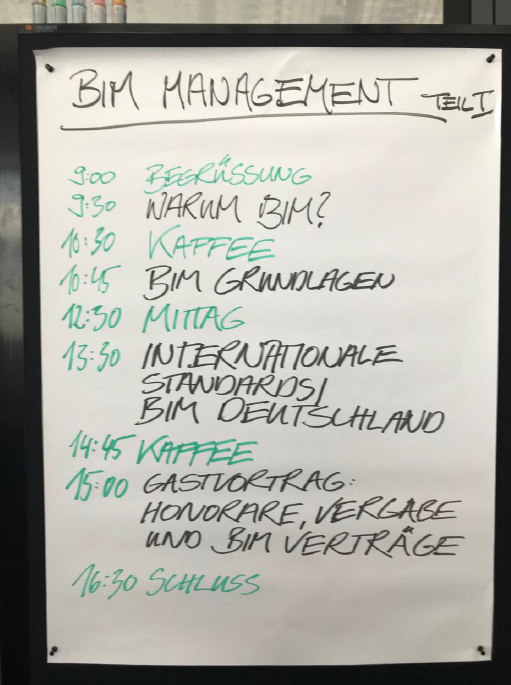 BIM MANAGEMENT TEIL I
9:00 BEGRÜSSUNG
9:30 WARUM BIM?
10:30 KAFFEE
10:45 BIM GRUNDLAGEN
12:30 MITTAG
13:30 INTERNATIONALE
STANDARDS/
BIM DEUTSCHLAND
14:45 KAFFEE
15:00 GASTVORTRAG:
HONORARE, VERGABE
UND BIM VERTRÄGE
16:30 SCHLUSS